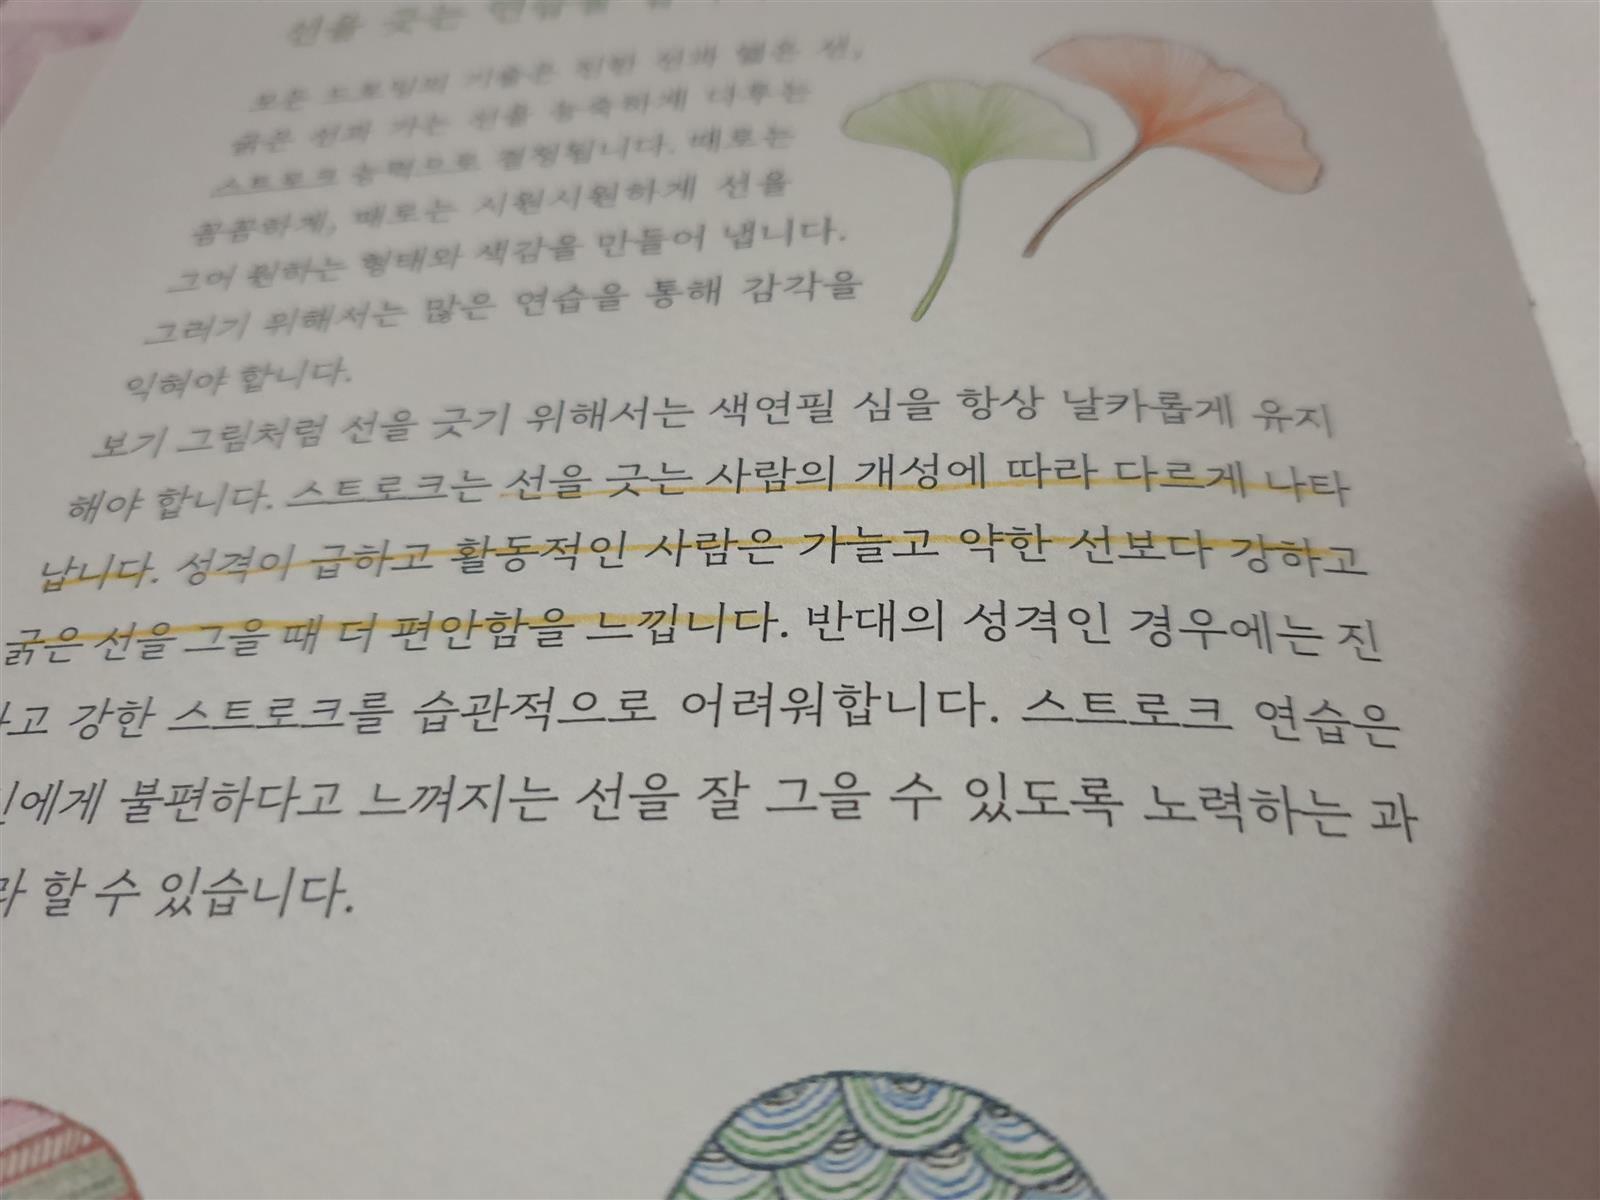 선을 긋는 연습을
모든 드로잉의 기술은 진한 선과 옅은 선,
굵은 선과 가는 선을 능숙하게 다루는
스트로크 능력으로 결정됩니다. 때로는
꼼꼼하게, 때로는 시원시원하게 선을
그어 원하는 형태와 색감을 만들어 냅니다.
그러기 위해서는 많은 연습을 통해 감각을
익혀야 합니다.
보기 그림처럼 선을 긋기 위해서는 색연필 심을 항상 날카롭게 유지
해야 합니다. 스트로크는 선을 긋는 사람의 개성에 따라 다르게 나타
납니다. 성격이 급하고 활동적인 사람은 가늘고 약한 선보다 강하고
굵은 선을 그을 때 더 편안함을 느낍니다. 반대의 성격인 경우에는 진
고 강한 스트로크를 습관적으로 어려워합니다. 스트로크 연습은
에게 불편하다고 느껴지는 선을 잘 그을 수 있도록 노력하는 과
라 할 수 있습니다.